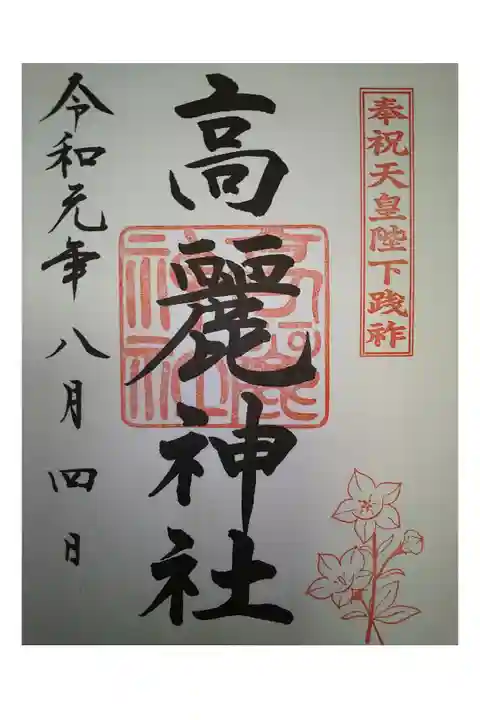 奉祝天皇陛下践祚
高麗神社
高麗神社
令和元年八月四日